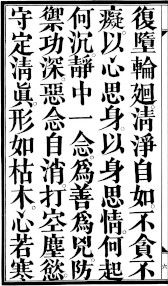 復墮輪廻清淨自如不貪不
癡以心思身以身思情何起
何沉靜中一念爲善爲兇防
禦功深惡念自消打空塵慾
守定清眞形如枯木心若寒